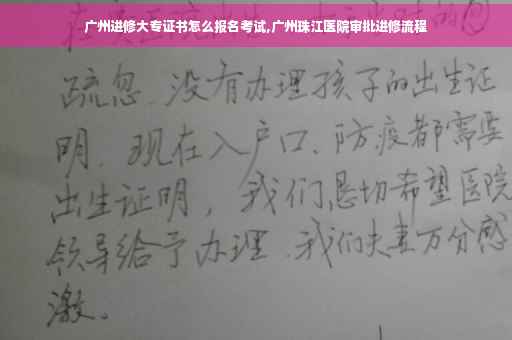 广州进修大专证书怎么报名考试,广州珠江医院审批进修流程
疏忽、没有办理孩子的出生证
明、现在入户口、防疫都需要
出生证明，我们恳切希望医院
领导给予办理、我们夫妻万分感
激。